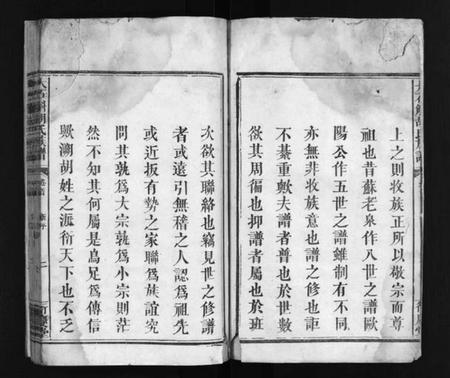 上之則收族正所以敬宗而尊
祖也昔蘇老泉作八世之譜歐
陽公作五世之譜雖制有不同
亦無非收族意也譜之修也詎
不綦重歟夫譜者普也於世數
欲其周徧也抑譜者屬也於班
次欲其聯絡也竊見世之修譜
者或遠引無稽之人認爲祖先
或近扳有勢之家聯爲族誼究
問其孰爲大宗孰爲小宗則茫
然不知其何屬是烏足爲傳信
歟溯胡姓之派衍天下也不乏